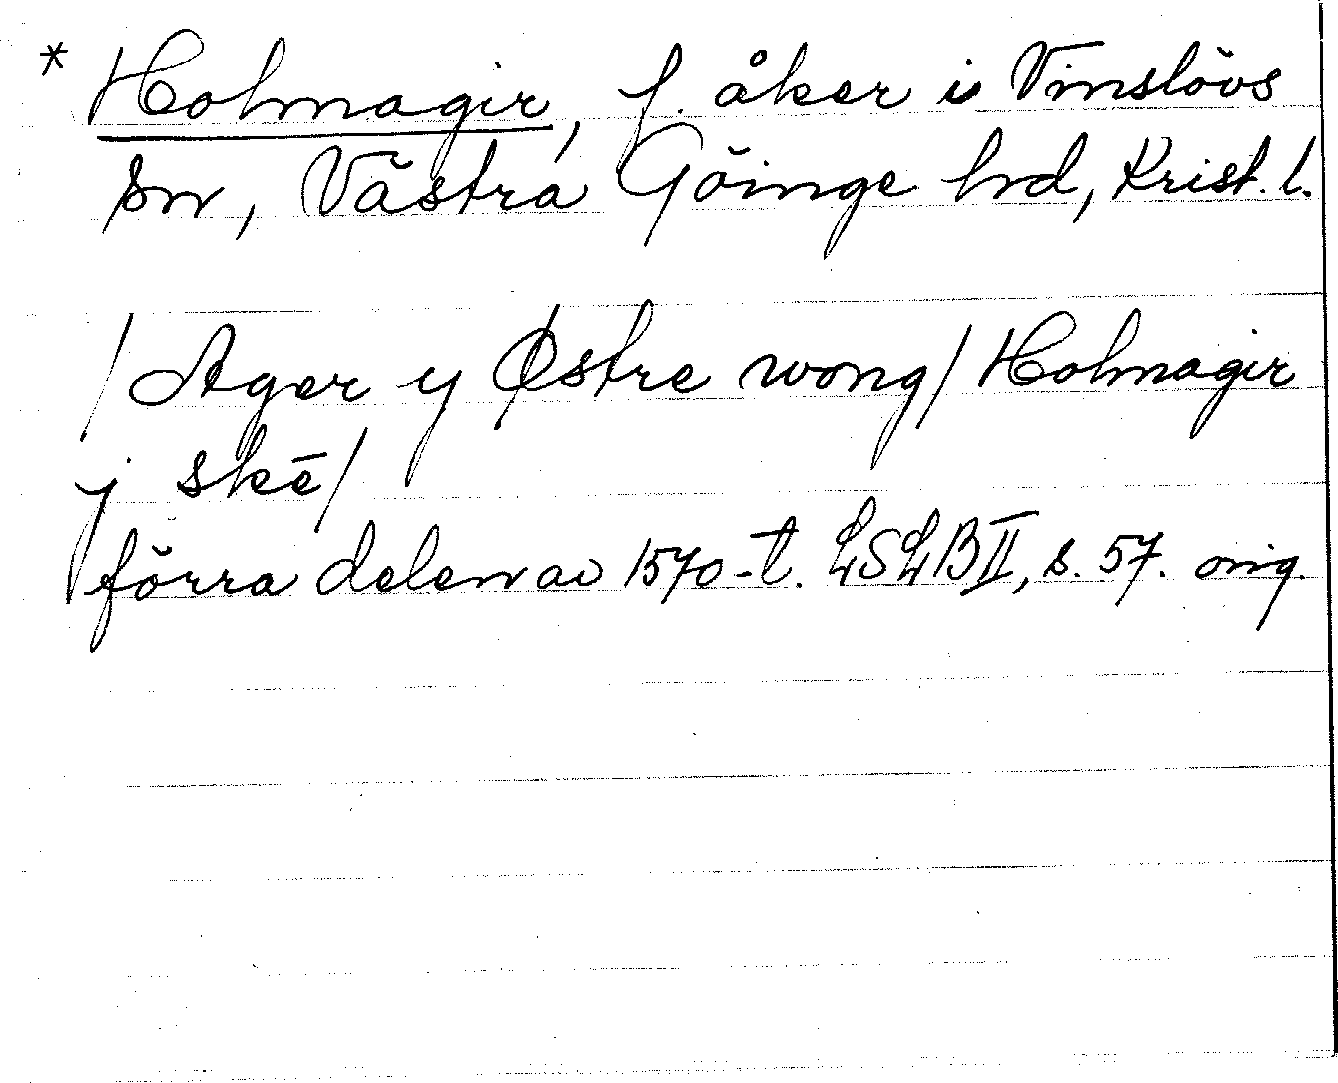 * Holmagir, f. åker i Vinslövs
sn, Västra Göinge hrd, Krist. l.
/Ager y Østre wong/ Holmagir
j skē/
förra delen av 1570-t. LSLB II, s. 57. orig.